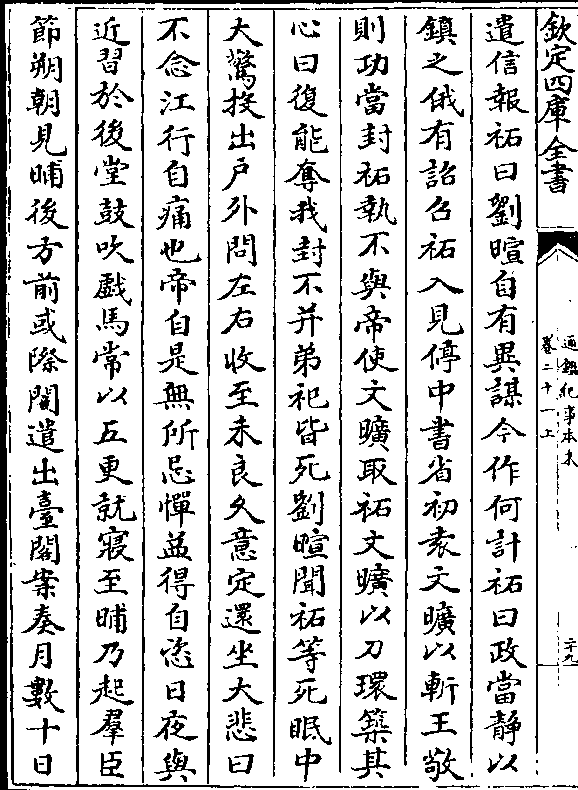 欽定四庫全書
通鑑紀事本末
卷二十一上
二十九
遣信報祏曰劉暄自有異謀今作何計祏曰政當静以
鎮之俄有詔召祏入見停中書省初袁文曠以斬王敬
則功當封祏執不與帝使文曠取祏文曠以刀環築其
心曰復能奪我封不并弟祀皆死劉暄聞祏等死眠中
大驚投出戶外問左右收至未良久意定還坐大悲曰
不念江行自痛也帝自是無所忌憚益得自恣日夜與
近習於後堂鼓吹戲馬常以五更就寢至晡乃起羣臣
節朔朝見晡後方前或際闇遣出臺閣案奏月數十日